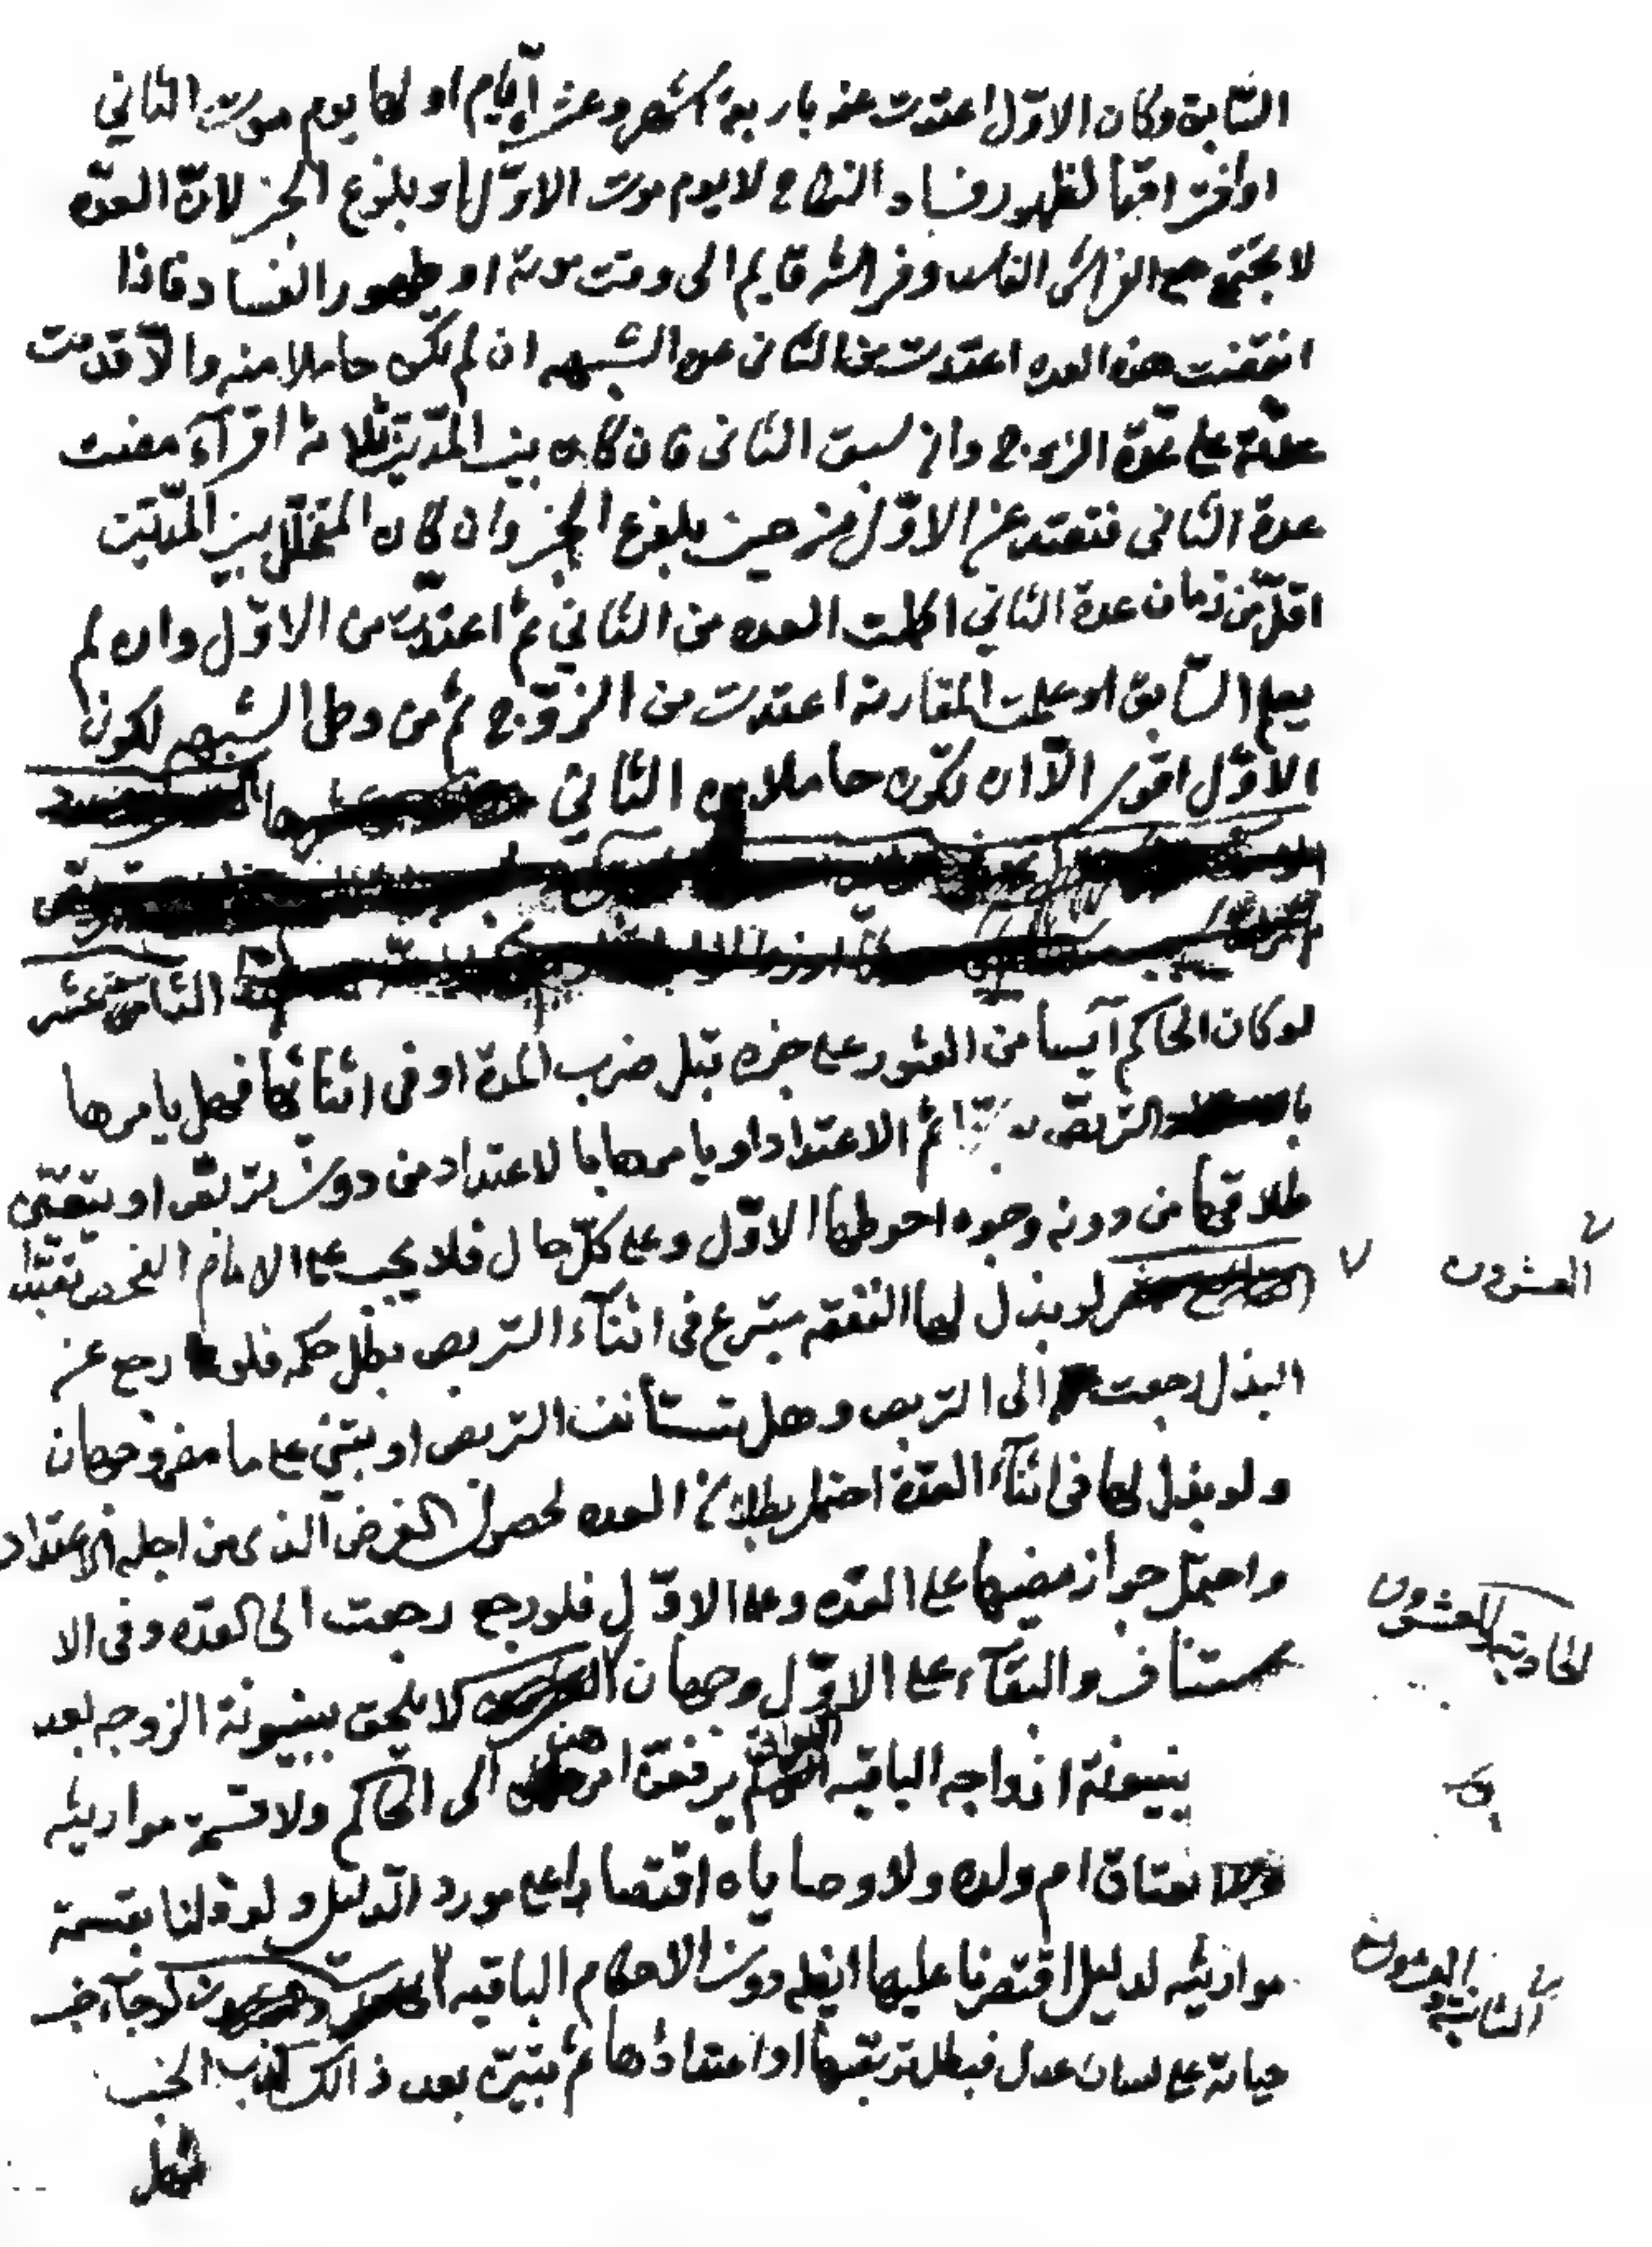 السّابق وكان الاوّل اعتدت عنه باربعة اشهر وعشر آيّام اولها يوم موت الثاني
او افتراقهما لظهور فساد النكاح لا يوم موت الاوّل او بلوغ الخبر لانّ العدّه
لا تجتمع مع الفراش الفاسد وفراشه قايم الى وقت موته او ظهور الفساد فاذا
انقضت هذه العده اعتدت من الثاني عن الشبهه ان لم تكن حاملا منه والّا قدمت
عدّته على عدّة الزوج وان سبق الثانى فان كان بين المدّتين ثلاثة اقرآء مضت
عدة الثانى فتعتد عن الاوّل من حين بلوغ الخبر وان كان المتخلّل بين المدّتين
اقلّ من زمان عدة الثاني اكملت العده من الثاني ثم اعتدّت من الاوّل وان لم
يعلم السّابق او علمت المقارنه اعتدت من الزوّج ثم من وطى الشبهه لكون
الاوّل اقوى الّا ان تكون حاملا من الثاني
الثامن عشر
لو كان الحاكم آيسا من العثور على خبره قبل ضرب المدة او فى اثنائها فهل يامرها
التربّص ثم الاعتداد او يامرها بالاعتداد من دون تربّص او يتعيّن
طلاقها من دونه وجوه احوطها الاوّل وعلى كلّ حال فلا يجب على الامام الفحص تعبّدا
لو بذل لها النفقه متبرع فى اثنآء التربص بطل حكمه فلو رجع عن
البذل رجعت الى التربص وهل تستأنف التربص او تبنى على ما مضى وجهان
ولو بذل لها فى اثنآء العدّة احتمل بطلان العده لحصول الغرض الذى من اجله الاعتداد
واحتمل جواز مضيها على العدّه وعلى الاوّل فلو رجع رجعت الى العدّه وفى الا
ستناف والبقآء على الاوّل وجهان لا يلحق ببينونة الزوجه بعد
بينونة ازواجه الباقيه اللواتى لم يرفعن امرهن الى الحاكم ولا قسمة مواريثه
انعتاق ام ولده ولا وصاياه اقتصارا على مورد الدّليل ولو قلنا بقسمة
مواريثه لدليل اقتصرنا عليها ايضا دون الاحكام الباقيه لو جآء خبر
حياته على لسان عدل فبطل تربّصها او اعتدادها ثم تبيّن بعد ذالك كذب الخبر
فهل
العشرون
الحادية والعشرون
الثانية والعشرون